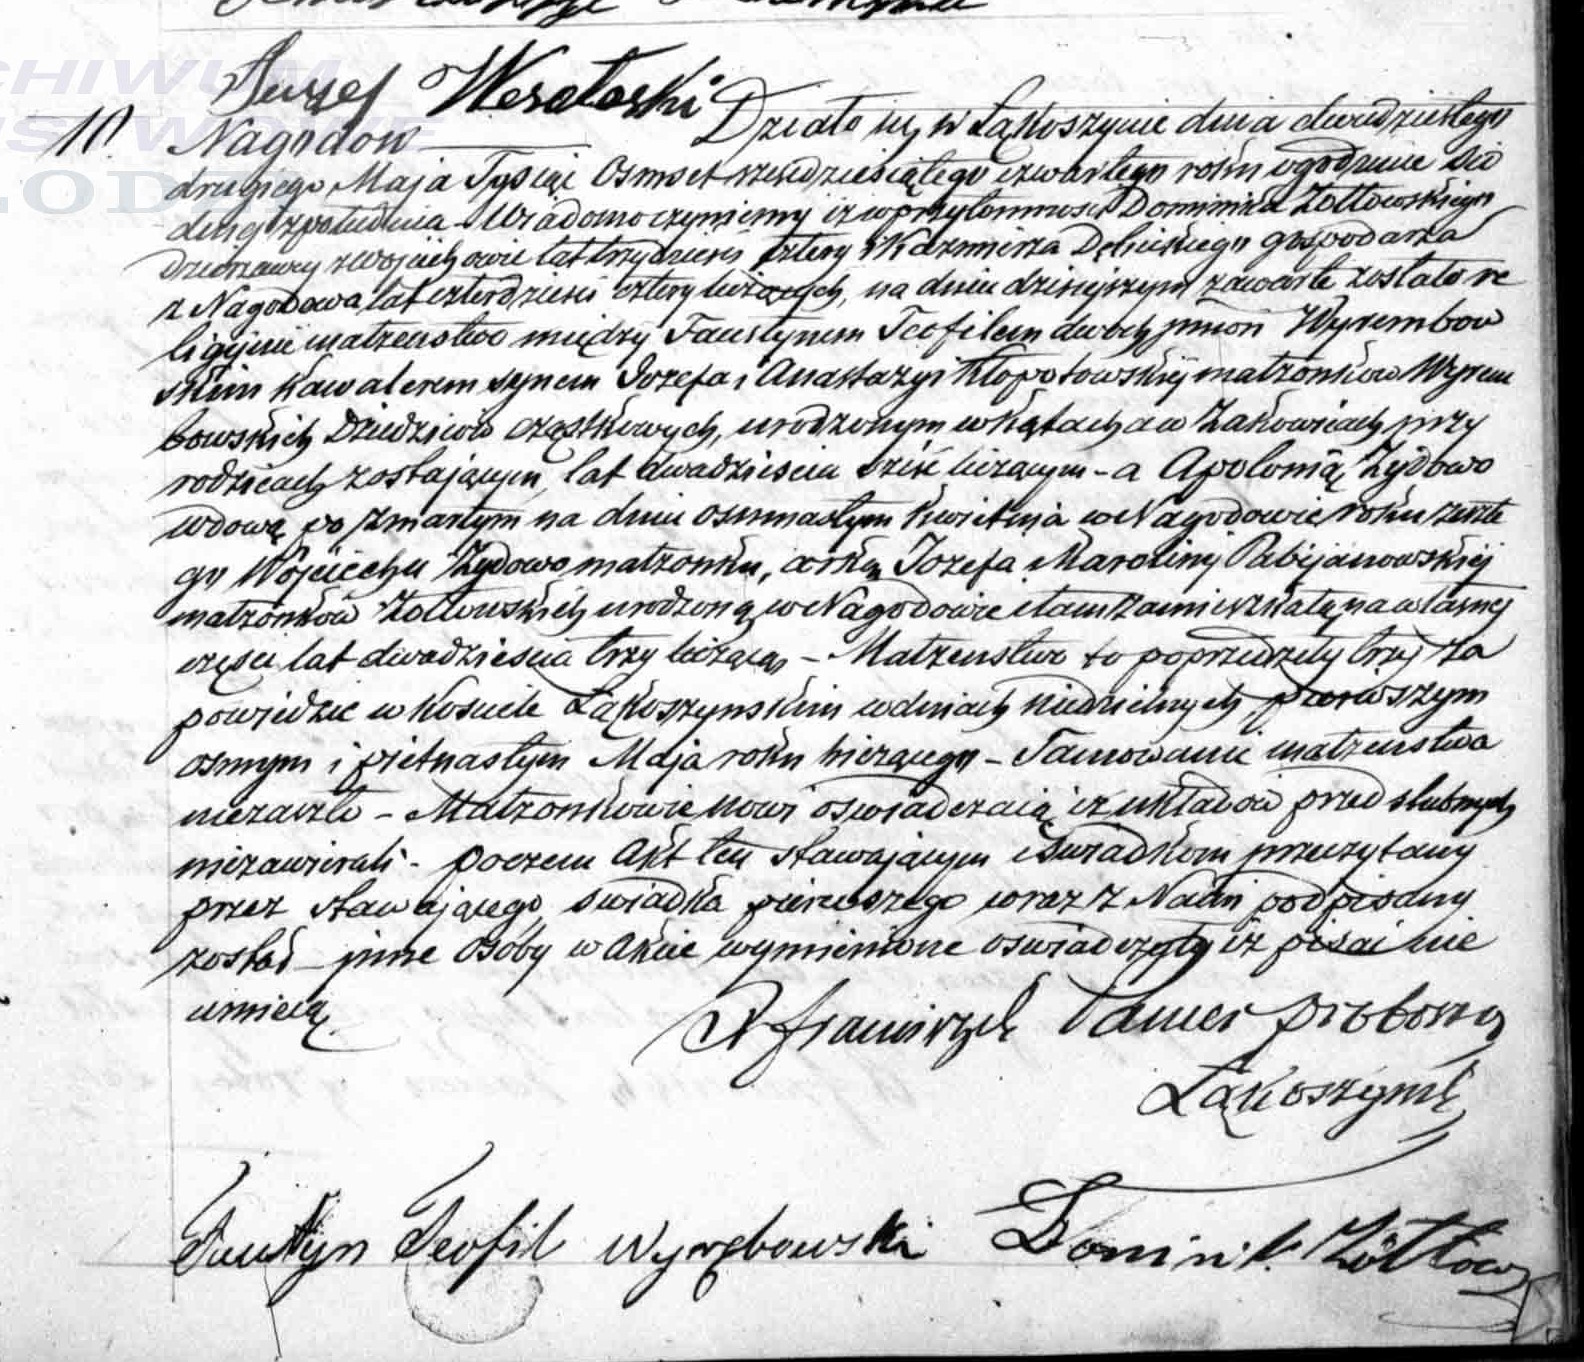 Juzef Wesołoski
10. Nagodow
Działo się w Łąkoszynie dnia dwudziestego
drugiego Maja Tysiąc Osmset sześćdziesiątego czwartego roku o godzinie sió
dmej z południa – Wiadomo czyniemy iż w przytomnosci Dominika Zołtowskiego
Dzierzawcy z Wojciechowic lat trzydzieści cztery i Kazimirza gospodarza
z Nagodowa lat czterdzieści cztery liczących, na dniu dzisiejszym zawarte zostało re
ligijnie małzenstwo między Faustynem Teofilem dwoch jmion Wyrembow
skim kawalerem synem Jozefa i Anastazyi Kłopotowskiéj małzonków Wyrem
bowskich Dziedziców cząstkowych, urodzonym w Kątach a w Zakowicach przy
rodzicach zostającym, lat dwadzieścia sześć liczącym – a Apolonią Zydowo
wdową po zmarłym na dniu osmnastym Kwietnia w Nagodowie roku zeszłe
go Wojciechu Zydowo małzonku, córką Jozefa i Karoliny Pabijanowskiéj
małzonków Zołtowskich urodzoną w Nagodowie i tam zamieszkałą na własnej
częsci lat dwadzieścia trzy liczącą – Małzenstwo to poprzedzyły trzy Za
powiedzie w Kosciele Łąkoszynskim w dniach niedzielnych pierwszym
osmym i piętnastym Maja roku bieżącego – Tamowanie małzenstwa
niezaszło – Małzonkowie nowi oswiadczaią iż układow przedslubnych
niezawierali – poczem Akt ten stawającym i Swiadkom przeczytany
przez stawającego, swiadka pierwszego wraz z Nami podpisany
został – jnne osóby w Akcie wymienione oswiadczyły iż pisać nie
umieią
X Franciszek proboszcz
Łąkoszynski
Faustyn Teofil Wyrębowski Dominik Żółtow